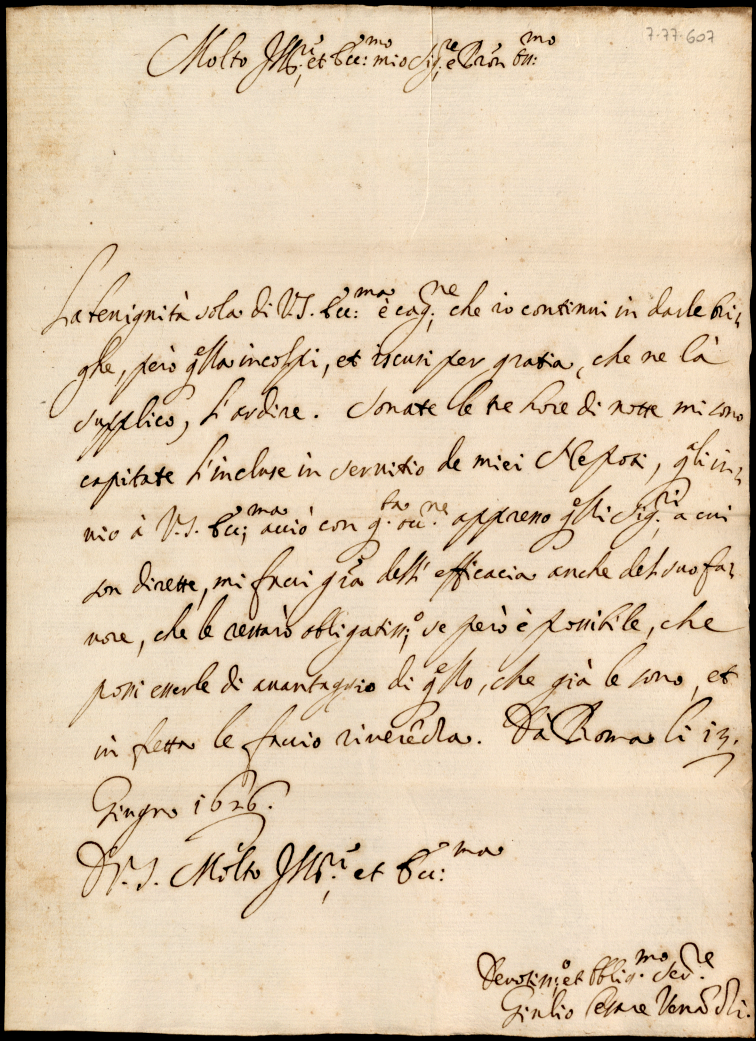 7-77-607
Molto Ill:ri et Ecc:mo mio Sig:re e Pron Oss:mo
La benignità sola di V.S. Ecc:ma è cag:ne che io continui in darle bri-
ghe, però q.ella incolpi, et iscusi per gratia, che ne la
supplico, l'ardire. Sonate le tre hore di notte mi sono
capitate l'incluse in servitio de miei Nepoti, q.li in-
vio à V.S. Ecc:ma acciò con q.ta occ.ne appresso q.elli Sig:ri a cui
son dirette, mi facci gra dell' efficacia anche del suo fa-
vore, che le restarò obligatiss:o se però è possibile, che
possi esserle di avantaggio di q.ello, che già le sono, et
in fretta le faccio riverēdza. Da Roma li 13.
Giugno 1626.
D V.S. Molto Ill:ri et Ecc:ma
Devotiss:o et Oblig.mo Ser.re
Giulio Cesare